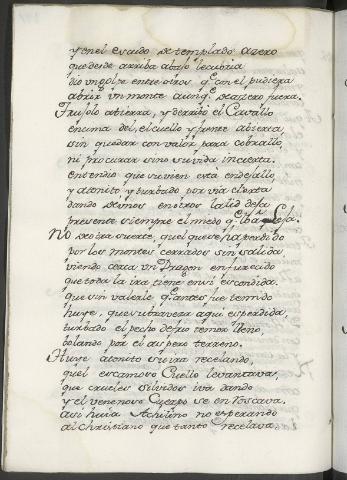 y en el escudo de templado azero
que desde arriba abajo le cubria
dio un golpe entre otros q.e con el pudiera
abrir un monte aunq.e de azero fuera.
Trujolo a tierra, y derribò el Cavallo
encima del, el cuello y frente abierta,
sin quedar con valor para cobrallo,
ni procurar sino su vida incierta.
entendio que su bien està en dejallo,
y atonito y turbado por via cierta
dando de unos en otros la lid deja
presente siempre el miedo q.e
No de otra suerte, quel que se ha perdido
por los montes cerrados sin salida
viendo cerca un Dragon enfurecido
que toda la ira tiene en si escondida.
que sin valerle q.e antes fue temido
huye, que su braveza aqui es perdida,
turbado el pecho de frio temor lleno,
bolando por el aspero terreno.
Huye atonito su ira recelando,
quel escamoso Cuello levantava,
que crueles silvidos iva dando
y el venenoso Cuerpo se enroscava.
asi huia Achitino no esperando
al christiano que tanto recelava